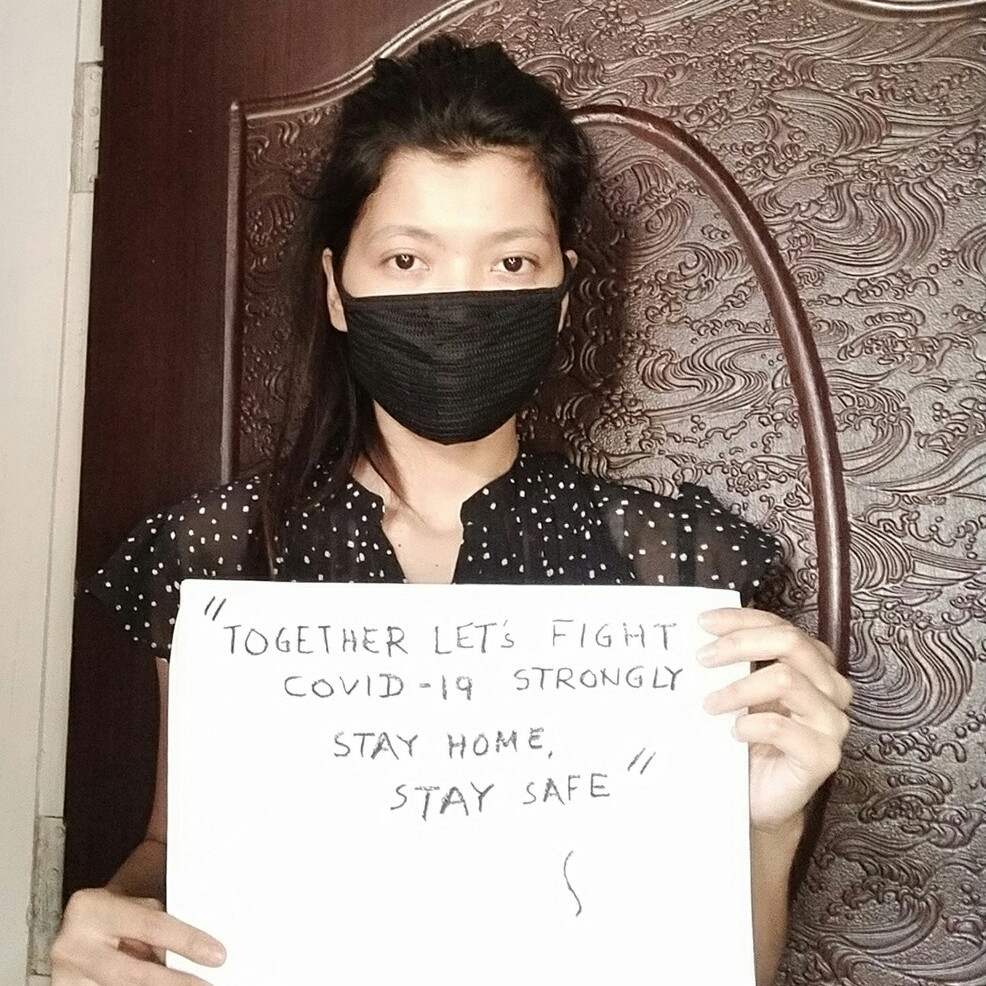 "TOGETHER LET's FIGHT
COVID-19 STRONGLY
STAY HOME,
STAY SAFE"